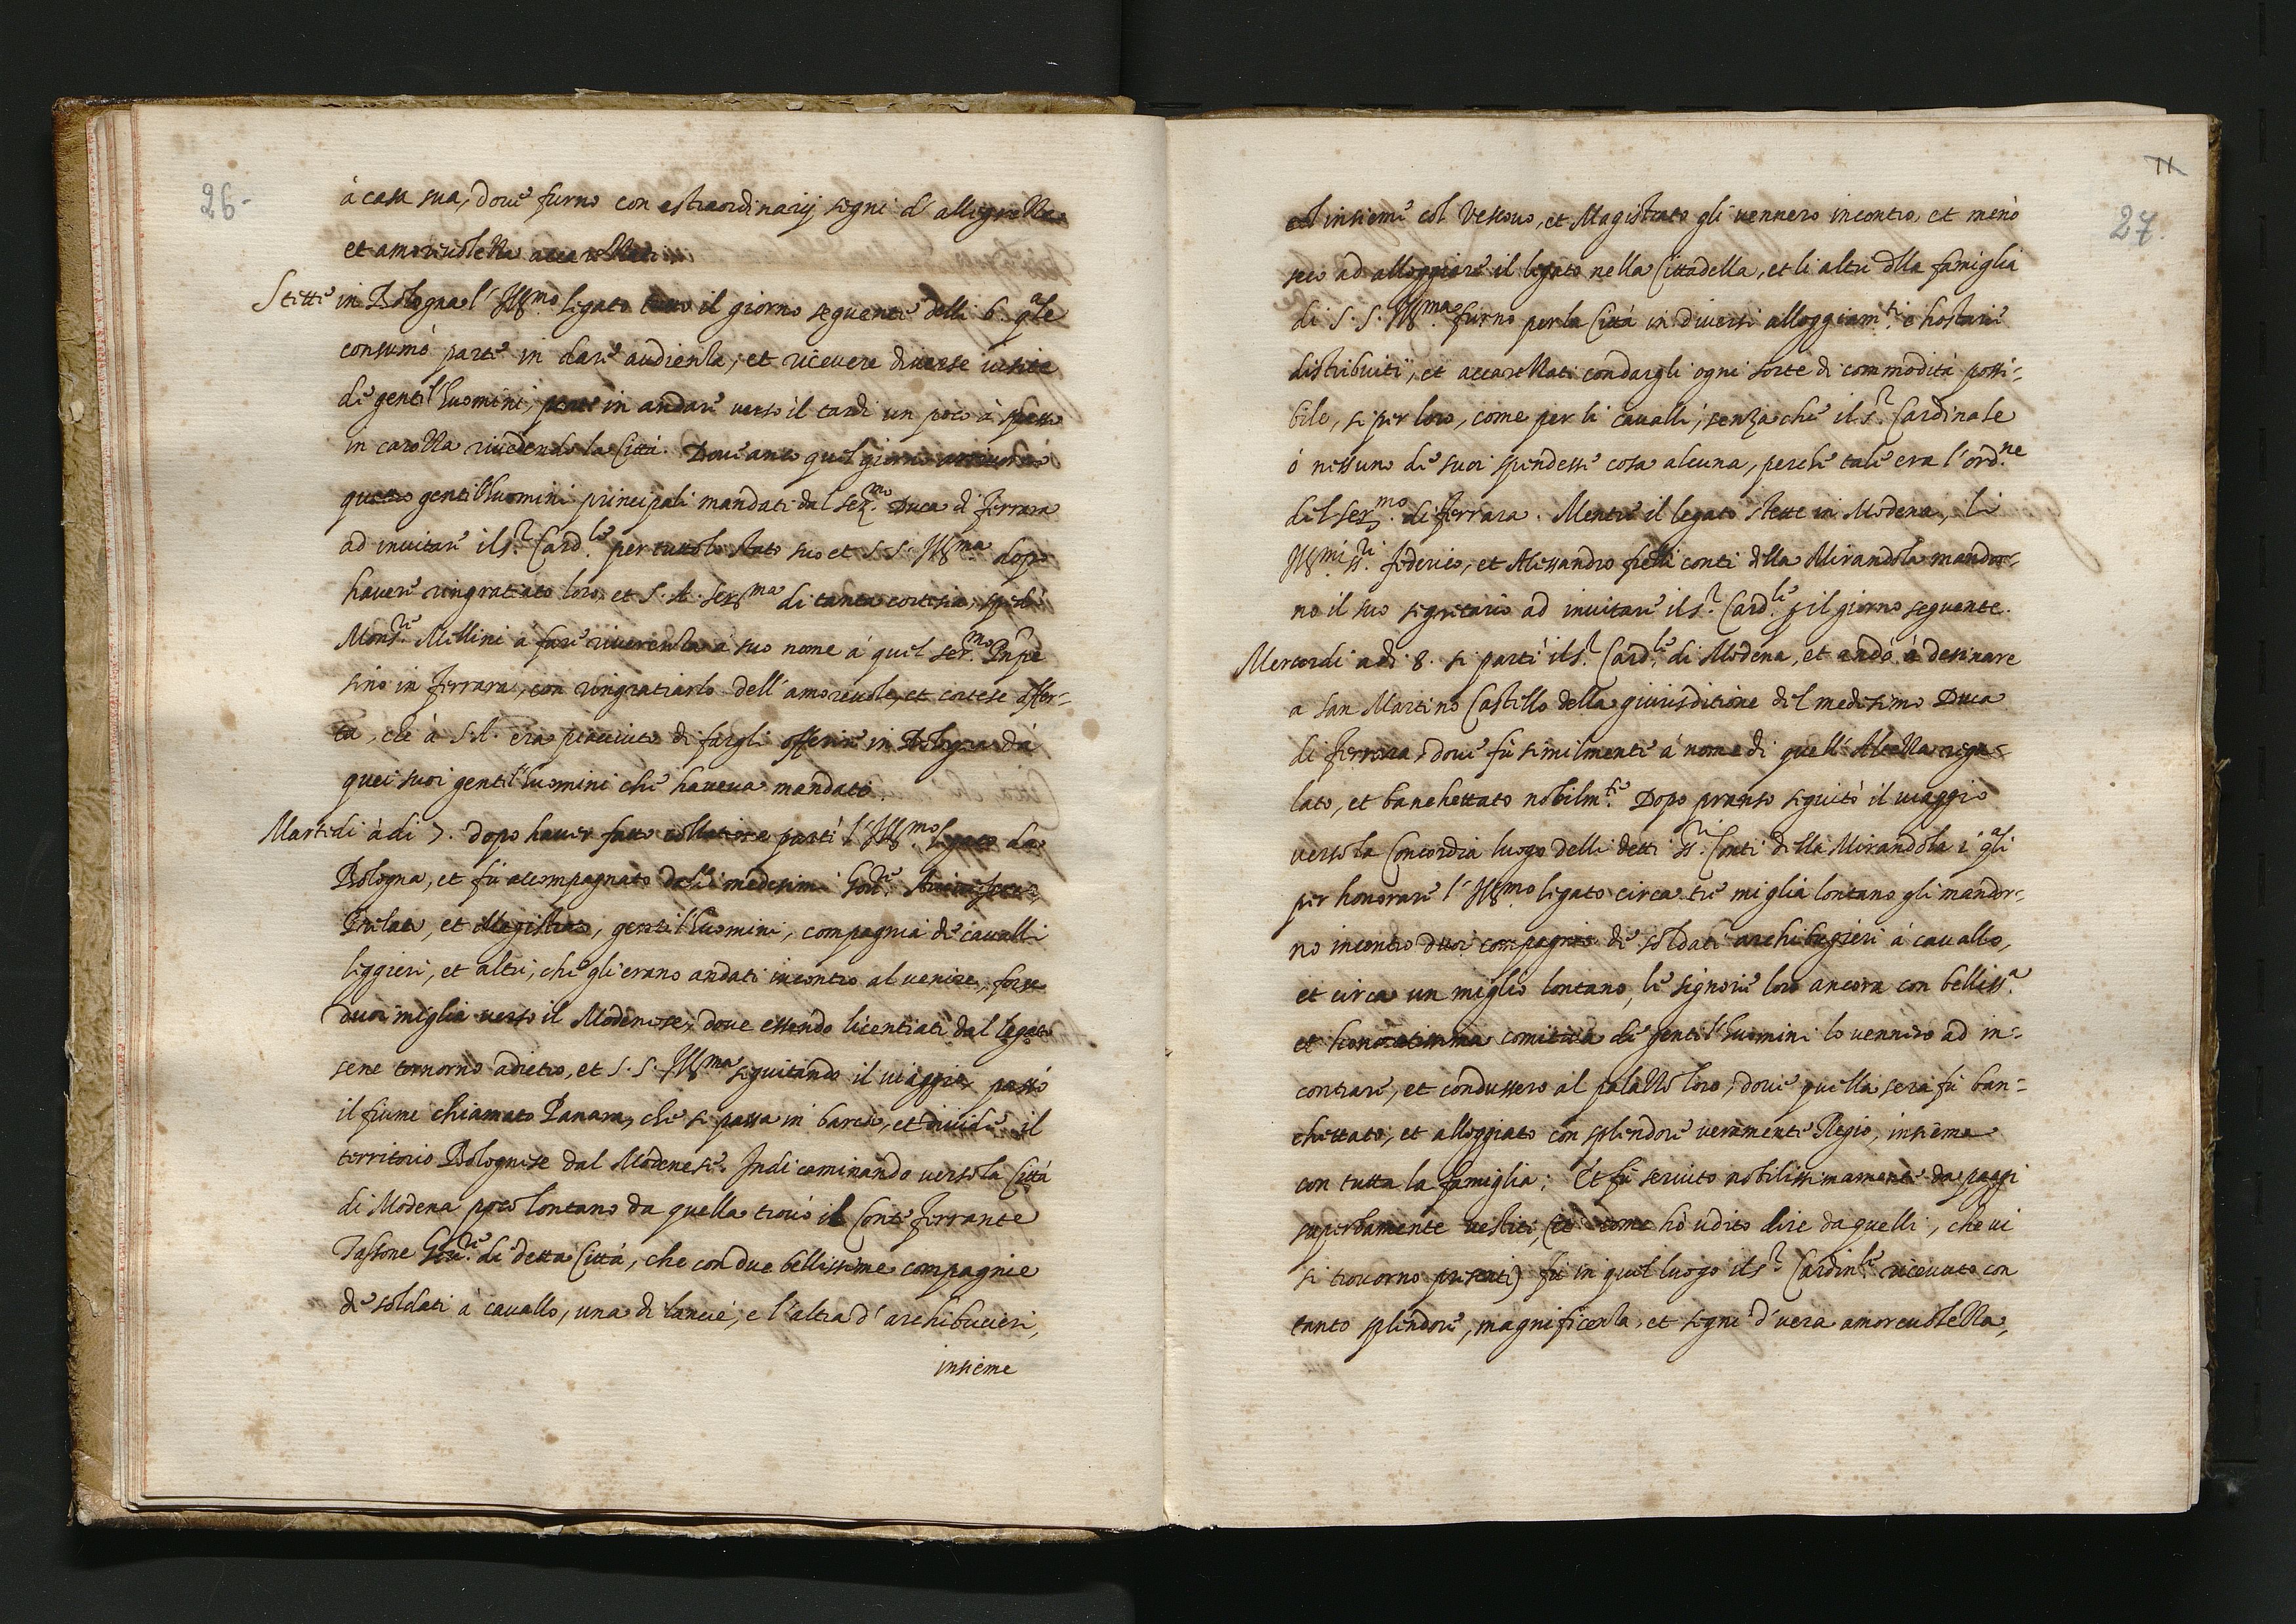 26.
à casa sua, dove furno con estraordinarij segni d'allegrezza
et amorevolezza accarezzati.
Stette in Bologna l'Ill.mo legato tutto il giorno seguente delli 6. q.ale
consumò parte in dare audienza, et ricevere diverse visite
de gentil'huomini, parte in andare verso il tardi un poco à spasso
in carozza rivedendo la Città. Dove anco quel giorno arrivorno
quattro gentil'huomini principali mandati dal Ser.mo Duca di Ferrara
ad invitare il S.r Card.le per tutto lo stato suo et S.S. Ill.ma dopo
havere ringratiato loro, et S.A. Ser.ma di tanta cortesia, spedì
Mons.re Millini à fare riverenza à suo nome à quel Ser.mo Pn̄pe
sino in Ferrara, con ringratiarlo dell'amorevole, et cortese offer-
ta, che à S.A. era piaciuto di fargli offerire in Bologna dà
quei suoi gentil'huomini che haveva mandato.
Martedi à di 7. dopo haver fatto collatione partì l'Ill.mo legato da
Bologna, et fù accompagnato dalli medesimi Gov.re
Prelato, et Magistrato, gentil'huomini, compagnia de cavalli
leggieri, et altri, che gli erano andati incontro al venire, forse
duoi miglia verso il Modenese, dove essendo licentiati dal legato
sene tornorno adietro, et S.S. Ill.ma seguitando il viaggio passò
il fiume chiamato Panara, che si passa in barca, et divide il
territorio Bolognese dal Modenese. Indi caminando verso la Città
di Modena poco lontano da quella trovò il Conte Ferrante
Tassone Gov.re di detta Città, che con due bellissime compagnie
de soldati à cavallo, una di lancie, e l'altra d'archibucieri,
insieme
11
27.
et insieme col Vescovo, et Magistrato gli vennero incontro et menò
seco ad alloggiare il legato nella Cittadella, et li altri d̄lla famiglia
di S.S. Ill.ma furno per la Città in diversi alloggiam.ti e hostarie
distribuiti, et accarezzati con dargli ogni sorte di commodità possi-
bile, si per loro, come per li cavalli, senza che il S.r Cardinale
ò nessuno de suoi spendesse cosa alcuna, perche tale era l'ord.ne
del Ser.mo di Ferrara. Mentre il legato stette in Modena, li
Ill.mi SS.ri Federico, et Alessandro fr̄elli conti della Mirandola mandor-
no il suo segretario ad invitare il S.r Card.le p il giorno seguente.
Mercordi adi 8. si partì il S.r Card.le di Modena, et andò à desinare
a San Martino Castello della giurisditione del medesimo Duca
di Ferrara, dove fù similmente à nome di quell'Altezza rega-
lato, et banchettato nobilm.te Dopo pranso seguitò il viaggio
verso la Concordia luogo delli detti SS.ri Conti della Mirandola i q.ali
per honorare l'Ill.mo legato circa tre miglia lontano gli mandor-
no incontro duoi compagnie de soldati archibugieri à cavallo,
et circa un miglio lontano, le signorie loro ancora con belliss.a
et honoratissima comitiva de gentil'huomini lo vennero ad in-
contrare, et condussero al palazzo loro, dove quella sera fù ban-
chettato, et alloggiato con splendore veramente Regio, insieme
con tutta la famiglia; Et fù servito nobilissimamente da paggi
superbamente vestiti, (et come hò udito dire da quelli, che vi
si trovorno presenti) fù in quel luogo il S.r Cardin.le ricevuto con
tanto splendore, magnificenza, et segni d'vera amorevolezza,